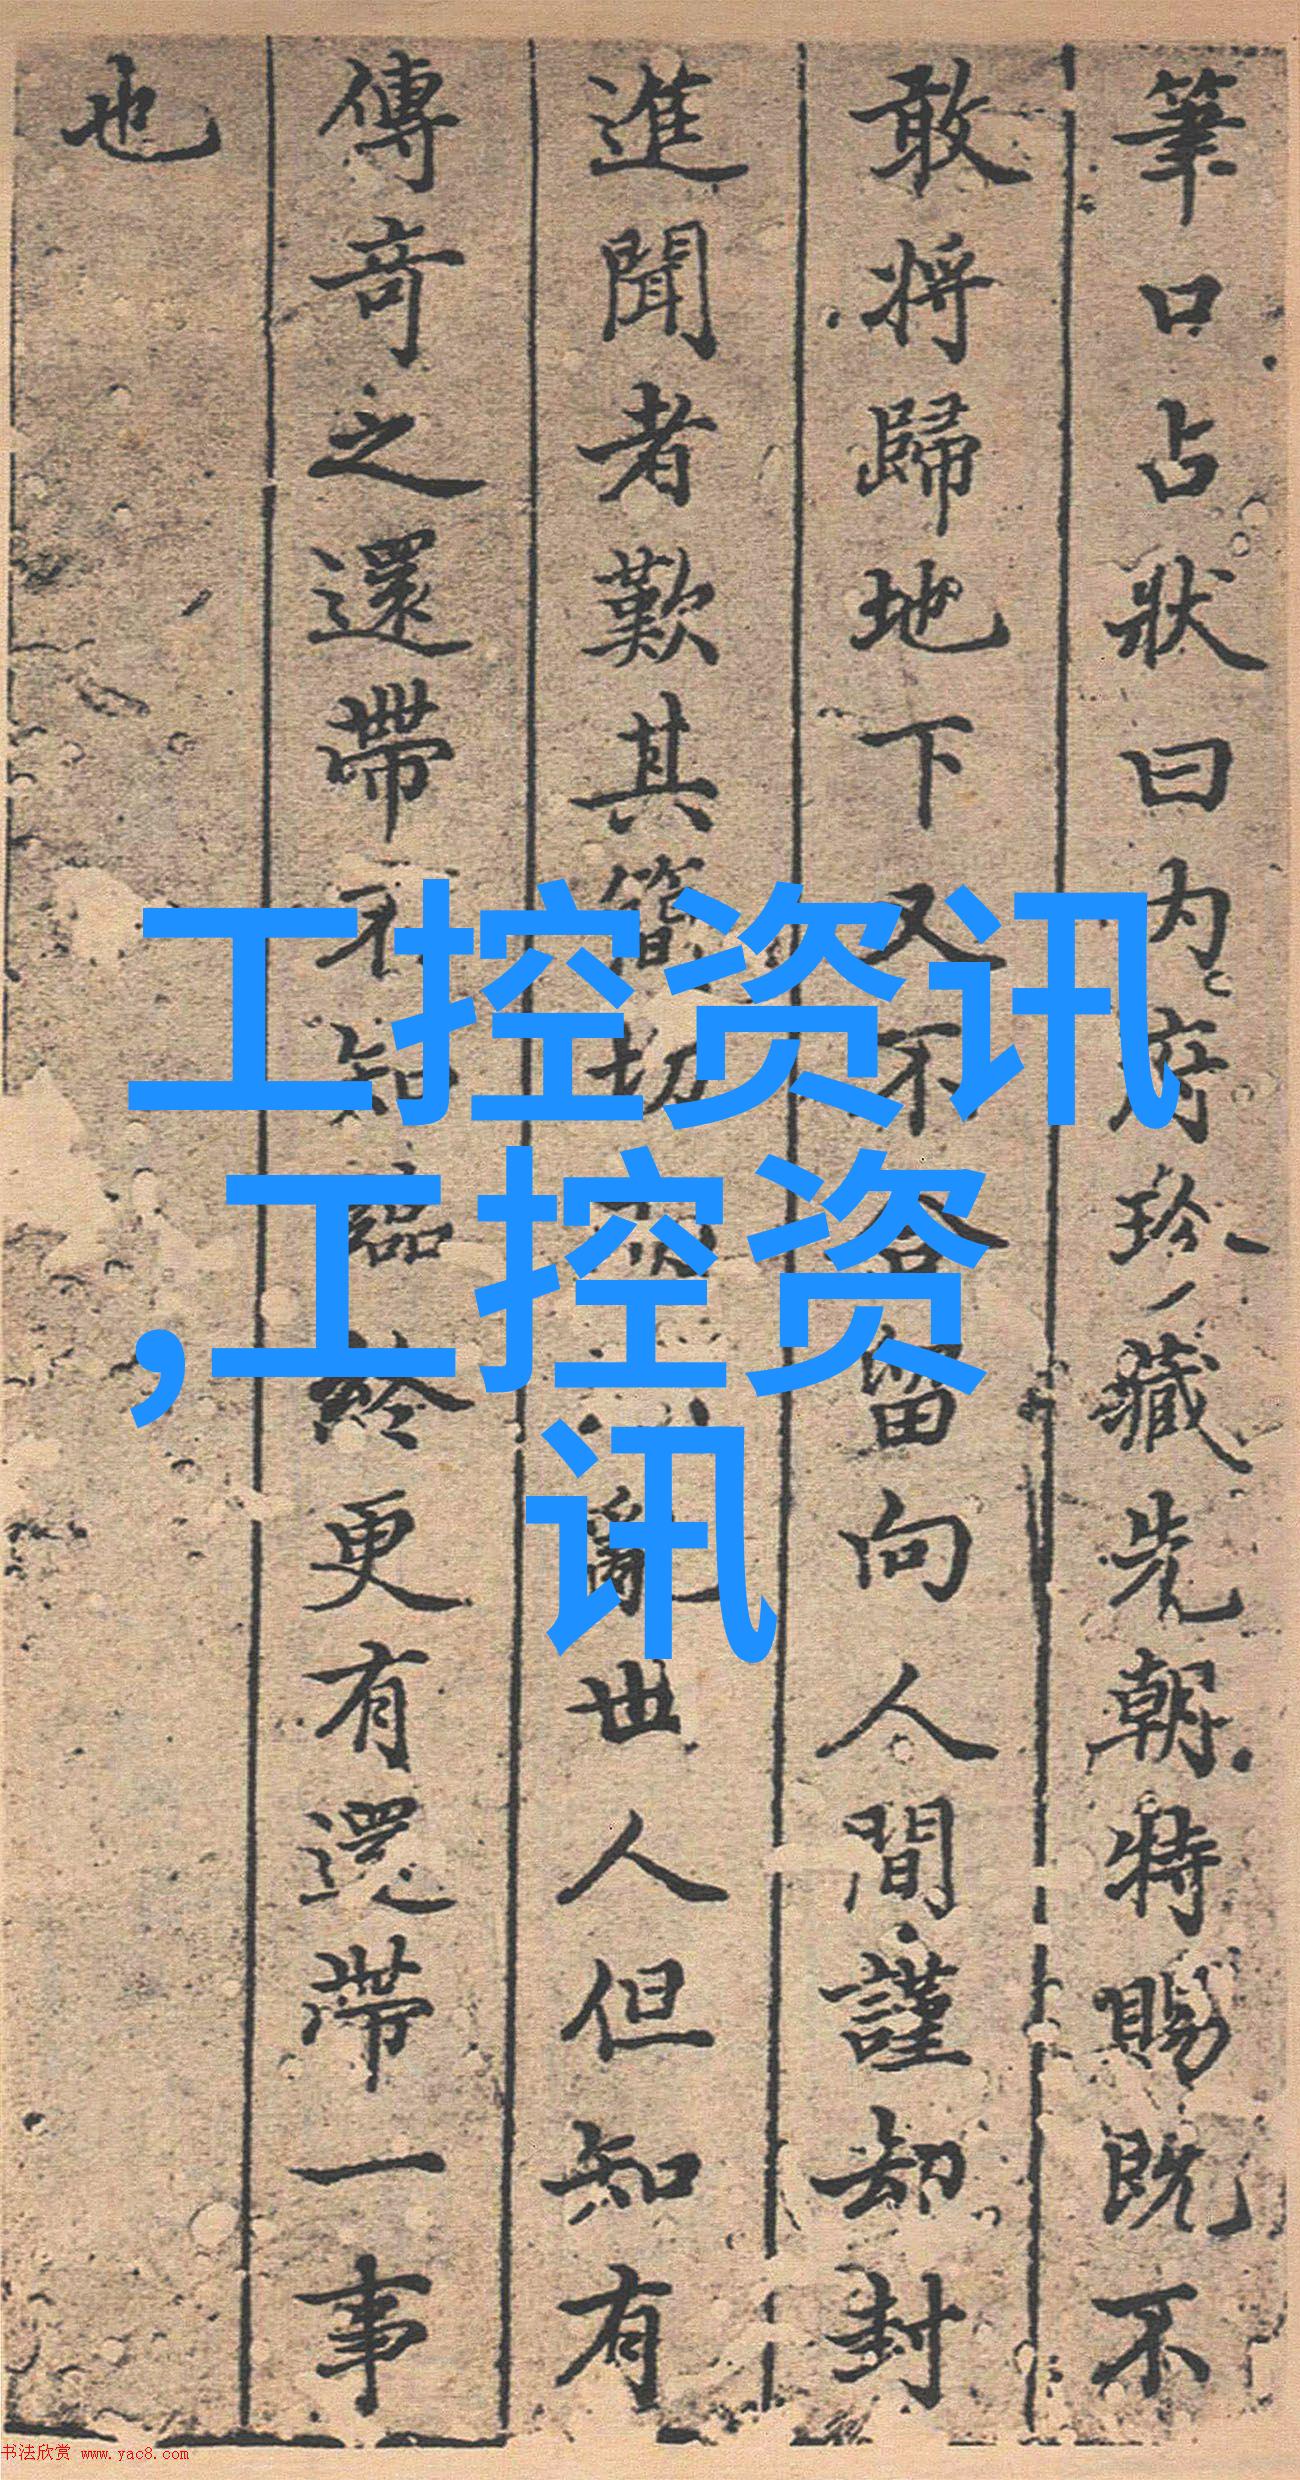 筆口占狀曰内府珍藏先朝特賜既不
敢將歸地下又不合留向人間謹却封
進聞者歎其簡切亂世人但知有
傳奇之還帶不知臨終更有還帶一事
也
工控资讯
,工控资
讯
书法欣赏 www.yac8.com